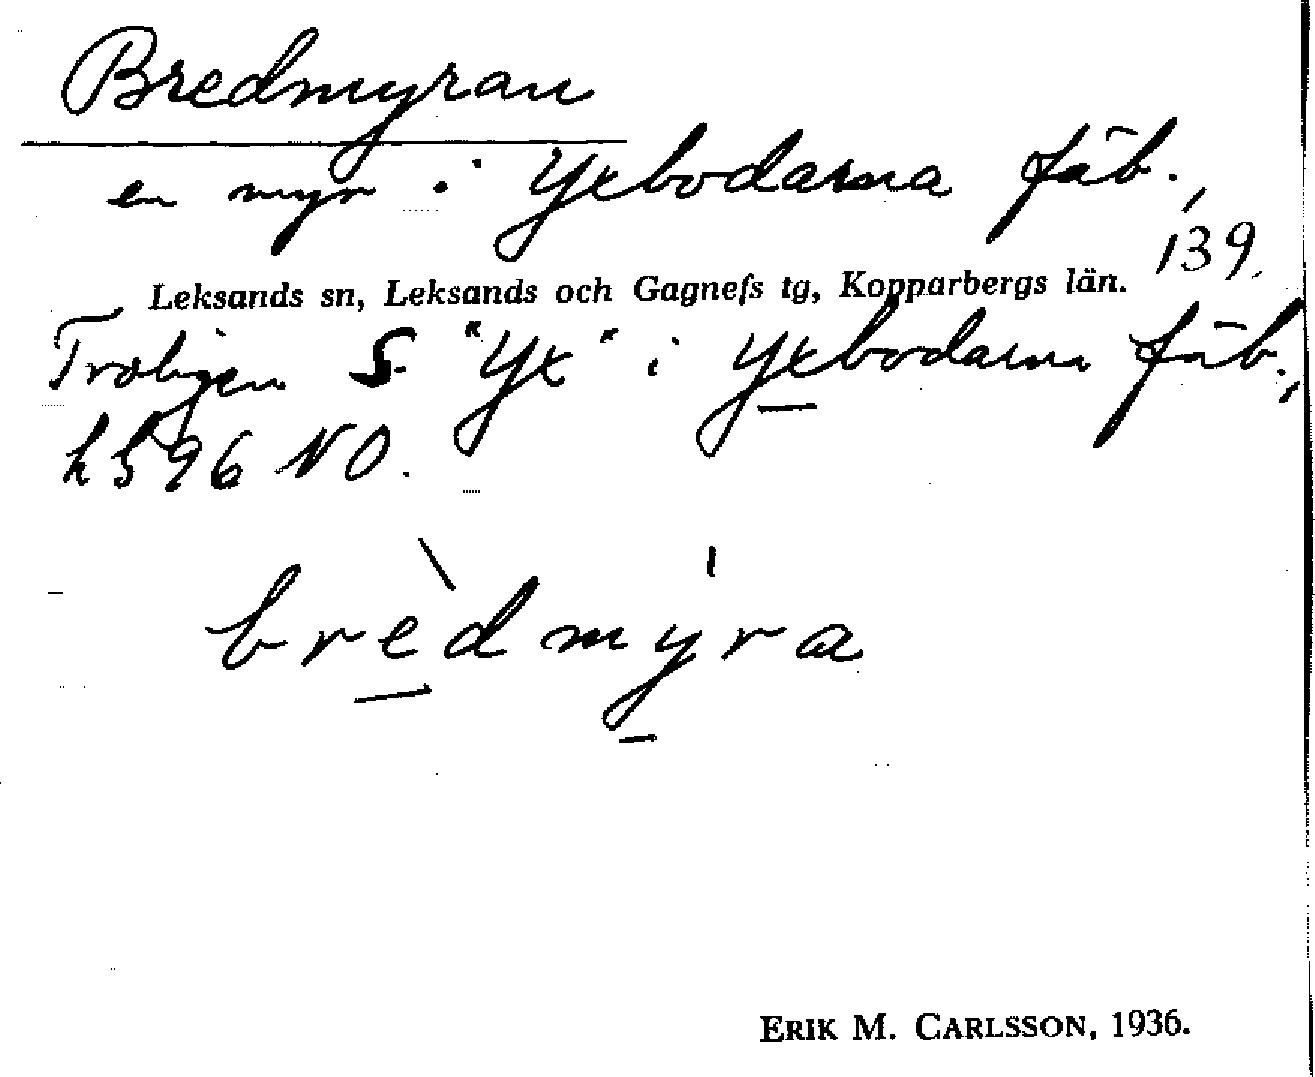 Bredmyran
en myr i Yxbodarna fäb.,
139.
Leksands sn, Leksands och Gagnefs tg, Kopparbergs län.
Troligen S "Yx" i Yxbodarna fäb.,
96 NO.
brèdmyra
ERIK M. CARLSSON, 1936.